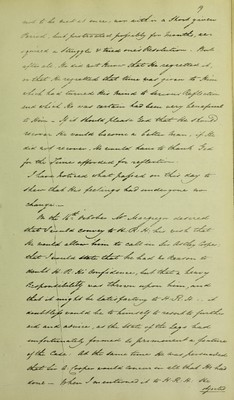 9
not to be met at once, nor within a short given
Period, but protracted, possibly for months, re-
-quired a struggle & tried ones Resolution. But
after all He did not know that He regretted it,
or that He regretted that time was given to Him
which had turned His mind to serious Reflection
and which He was certain had been very beneficial
to Him - If it should please God that He should
recover He would become a better man, if He
did not recover He would have to thank God
for the time afforded for reflection
I have noticed what passed on this day to
show that His feelings had undergone no
change -
On the October Mr Macgregor desired
that I would convey to H.R.H. his wish that
He would allow him to call in Sir Astley Cooper
that I would state that he had no Reason to
doubt H.R.H's Confidence, but that a heavy
Responsibility was thrown upon him, and
that it might be satisfactory to H.R.H. as it
doubtless would be to himself to resort to further
aid and advice, as the state of the legs had
unfortunately formed so prominent a feature
of the Case. At the same time He was persuaded
that Sir A Cooper would concur in all that He had
done - When I mentioned it to H.R.H. He